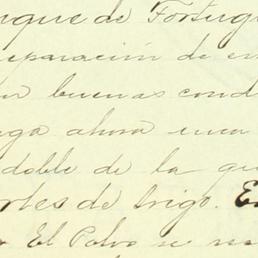 nque de Fortug
eparación de
n buenas cond
ga ahora una
doble de la qu
rtes de trigo. E
El Polvo se